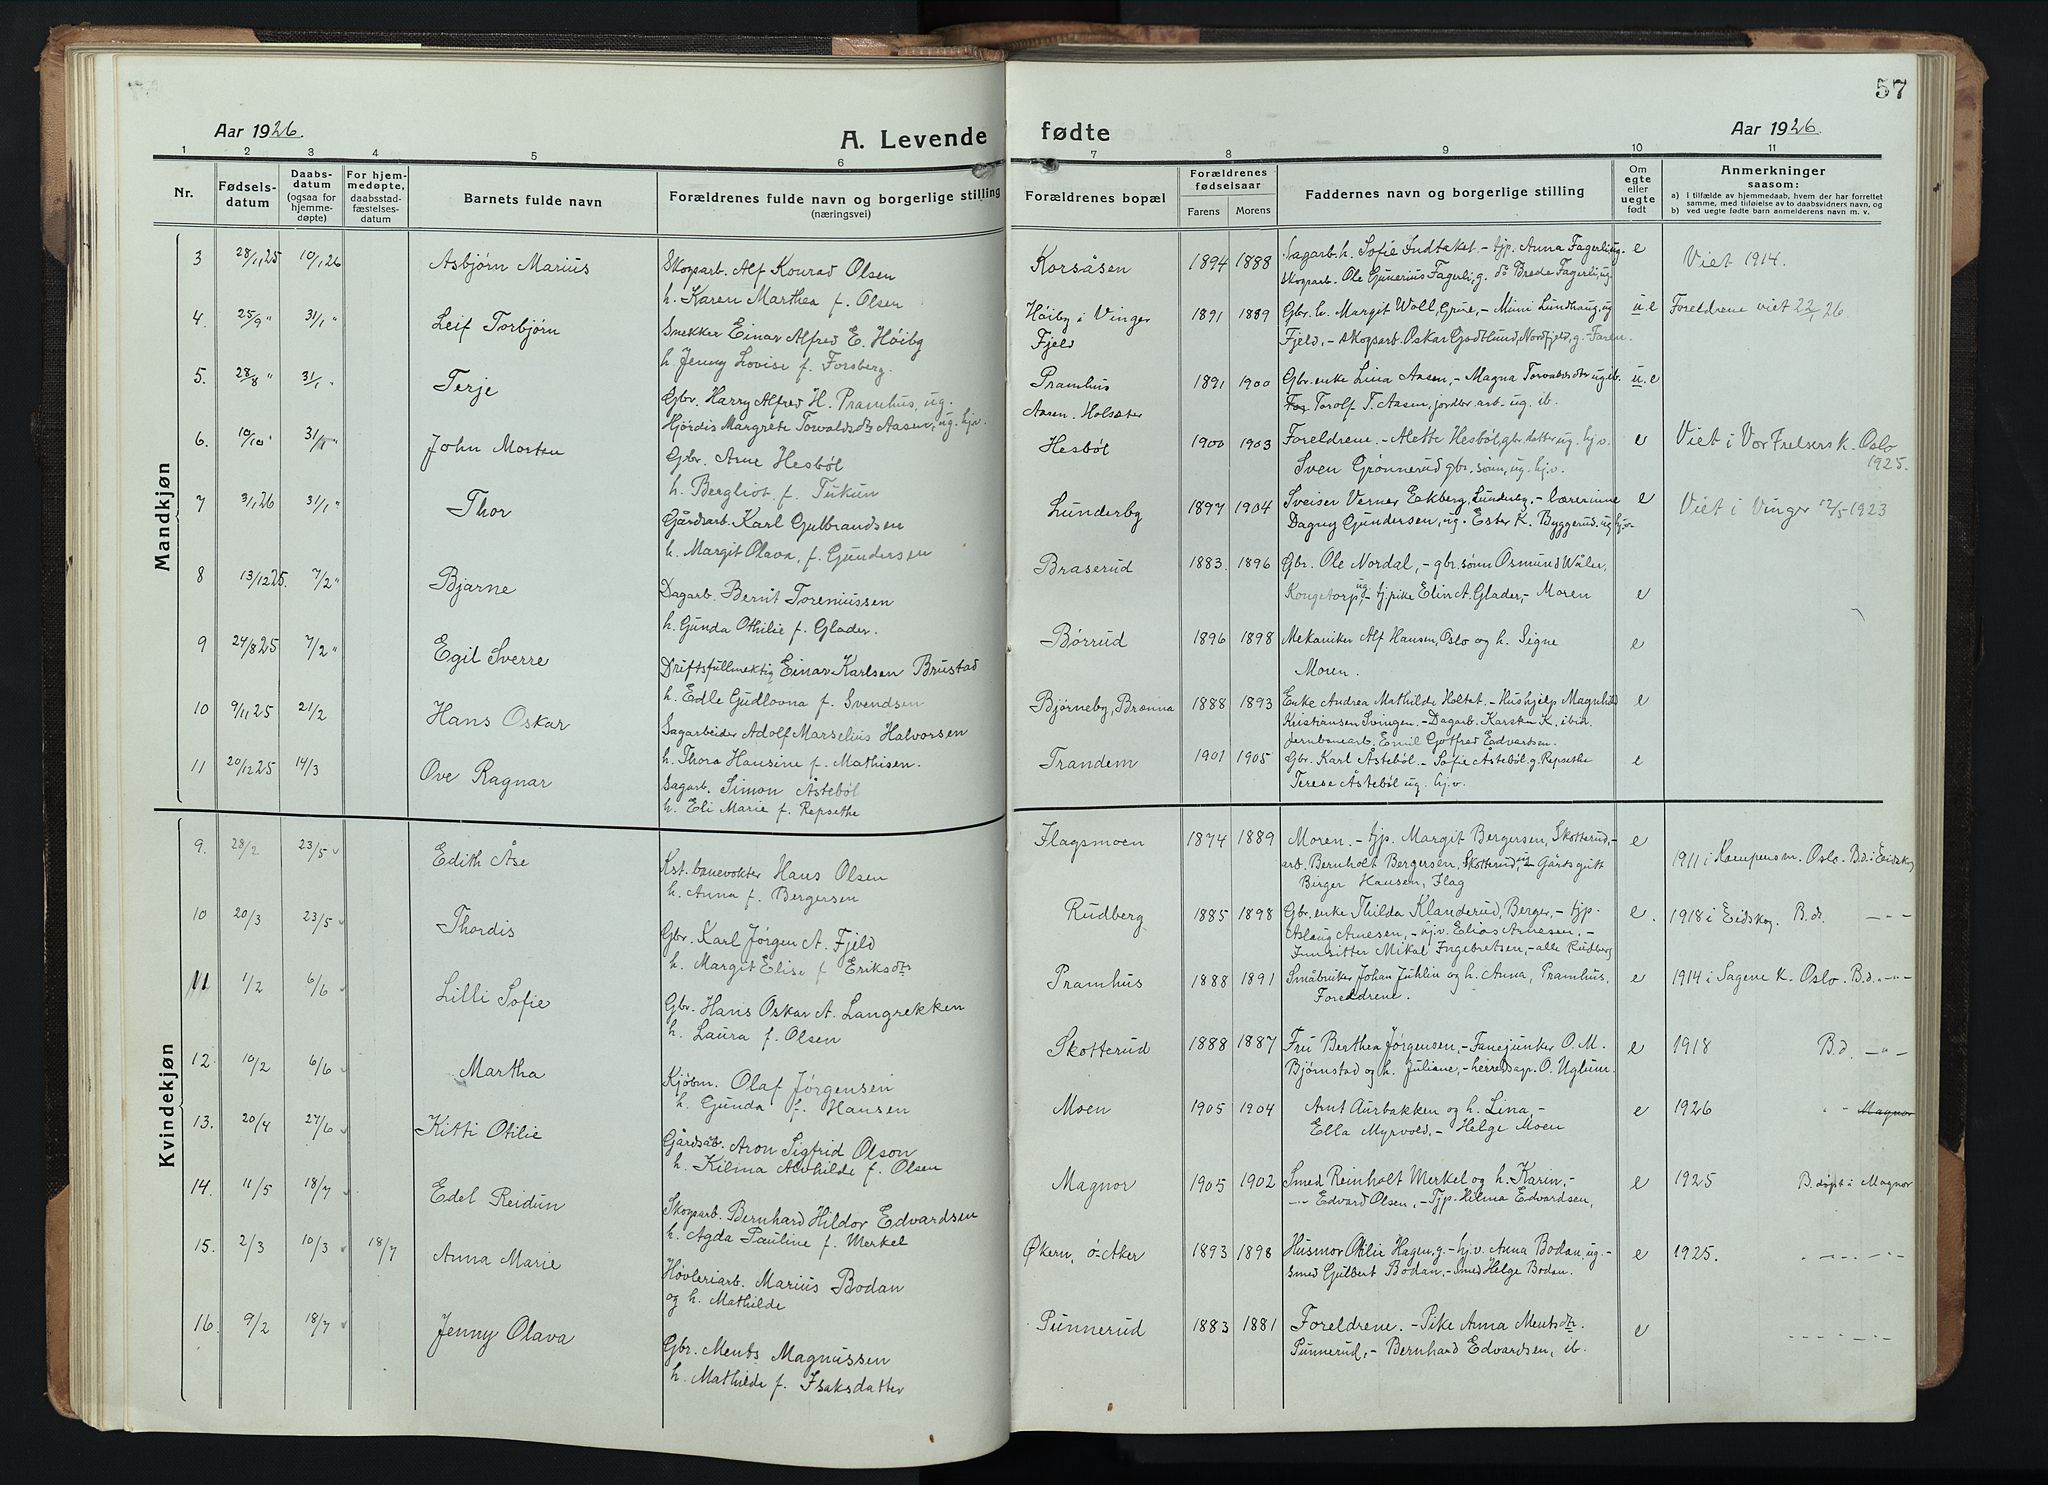 57
Aar 1926.
A. Levende fødte
Aar 1926.
1 2 3 4 5 6 7 8 9 10 11
Nr.
Fødsels-
datum
Daabs-
datum
(ogsaa for
hjemme-
døpte)
For hjem-
medøpte,
daabsstad-
fæstelses-
datum
Barnets fulde navn
Forældrenes fulde navn og borgerlige stilling
(næringsvei)
Forældrenes bopæl
Forældrenes
fødselsaar
Farens Morens
Faddernes navn og borgerlige stilling
Om
egte
eller
uegte
født
Anmerkninger
saasom:
a) I tilfælde av hjemmedaab, hvem der har forrettet
samme, med tilføielse av to daabsvidners navn, og
b) ved uegte fødte barn anmelderens navn m. v.
Mandkjøn
3 28/1,25 10/1,26 Asbjørn Marius
Skogsarb. Alf Konrad Olsen
h. Karen Marthea f. Olsen
Korsåsen 1894 1888
Sagarb. h. Sofie Indtaket - tjp. Anna Fagerli, ug.
Skogsarb. Ole Gunerius Fagerli, g. do Brede Fagerli, ug.
e Viet 1914.
4. 25/9 " 31/1 " Leif Torbjørn
Snekker Einar Alfred E. Høiby
h. Jenny Lovise f. Forsberg.
Høiby i Vinger
Fjeld
1891 1889
Gbr. h. Margit Woll, Grue, - Mimi Lundhaug, ug
Fjeld, - Skogsarb. Oskar Godtlund, Nordfjeld, g. - Faren.
u. e Foreldrene viet 22/1 26.
5. 28/8 " 31/1 " Terje
Gbr. Harry Alfred H. Pramhus, ug.
Hjørdis Margrete Torvaldsdtr Aasen, ug. hjv.
Pramhus
Aasen. Holsæter
1891 1900
Gbr. enke Lina Aasen, - Magna Torvaldsdtr ug. ib.
Torolf T. Aasen, jordbr. arb - ug. ib.
u. e
6. 10/10 " 31/1 " John Morten
Gbr. Arne Hesbøl
h. Bergliot f. Tukun
Hesbøl 1900 1903
Foreldrene. - Alette Hesbøl, gbr. datter ug. hj.v.
Sven Grønnerud gbr. sønn, ug. hj.v.
e Viet i Vor Frelsers K. Oslo
1925.
7 3/1,26 31/1 " Thor
Gårdsarb. Karl Gulbrandsen
h. Margit Olava, f. Gundersen
Lunderby 1897 1904
Sveiser Verner Ekberg, Lunderby. - Lærerinne
Dagny Gundersen, ug. - Ester K. Byggerud, ug hj.v.
e Viet i Vinger 12/5 1923
8 13/12 25. 7/2 " Bjarne
Dagarb. Bernt Toreniussen
h. Gunda Othilie f. Glader.
Braserud 1883. 1896
Gbr. Ole Nordal, - gbr. sønn Osmund Wåler,
Kongetorp, ug. - tj.pike Elin A. Glader, - Moren
e
9 24/8 25 7/2 " Egil Sverre
Driftsfullmektig Einar Karlsen Brustad
h. Edle Gudlovna f. Svendsen
Børrud 1896 1898
Mekaniker Alf Hansen, Oslo og h. Signe
Moren.
e
10 9/11 25 21/2 Hans Oskar
Sagarbeider Adolf Marselius Halvorsen
h. Thora Hansine f. Mathisen.
Bjørneby, Brænna 1888 1893
Enke Andrea Mathilde Holtet - Hushjelp Magnhild
Kristiansen Svingen. - Dagarb. Karsten K. ibid.
Jernbanearb. Emil Gotfred Edvardsen.
e
11 20/12 25 14/3 Ove Ragnar
Sagarb. Simon Åstebøl
h. Eli Marie f. Repsethe
Trandem 1901 1905
Gbr. Karl Åstebøl - Sofie Åstebøl g. Repsethe
Terese Åstebøl ug. hj.v.
e
Kvindekjøn
9. 28/2 23/5 Edith Åse
Kst. banevokter Hans Olsen
h. Anna f. Bergersen
Flagsmoen 1874 1889
Moren. - tjp. Margit Bergersen, Skotterud, -
arb. Bernholt Bergersen, Skotterud, ug - Gårdsgutt
Birger Hansen, Flag
e 1911 i Kampens m. Oslo. B.d. i Eidskog
10 20/3 23/5 Thordis
Gbr. Karl Jørgen A. Fjeld
h. Margit Elise f Eriksdtr
Rudberg 1885 1898
Gbr. enke Thilda Klanderud, Berger, - tjp.
Aslaug Arnesen, - hj.v. Elias Arnesen. -
Innsitter Mikal Ingebretsen, - alle Rudberg
e. 1918 i Eidskog. B.d. - " -
11 1/2 6/6 Lilli Sofie
Gbr. Hans Oskar A. Langrekken
h. Laura f. Olsen
Pramhus 1888 1891
Småbruker Johan Juhlin og h. Anna, Pramhus,
Foreldrene.
e 1914 i Sagene K. Oslo. B.d. - " -
12 10/2 6/6 Martha
Kjøbm. Olaf Jørgensen
h. Gunda f. Hansen
Skotterud 1888 1887
Fru Berthea Jørgensen, - Fanejunker O. M.
Bjørnstad og h. Juliane, - herredsgp. O. Uglum.
e 1918 B.d. - " -
13. 20/4 27/6 Kitti Otilie
Gårdsab. Aron Sigfrid Olson
h. Kilma Alvhilde f. Olsen
Moen 1905 1904
Arnt Aurbakken og h. Lina, -
Ella Myrvold, - Helge Moen
e 1926 " - Magnor
14. 11/5 18/7 Edel Reidun
Skogsarb. Bernhard Hildor Edvardsen
h. Agda Pauline f. Merkel
Magnor 1905 1902
Smed Reinholt Merkel og h. Karin, -
- " - Edvard Olsen, - Tjp. Hilma Edvardsen,
e 1925 B. døpt i Magnor
15. 2/3 10/3 18/7 Anna Marie
Høvleriarb. Marius Bodan
og h. Mathilde
Økern, Ø-Aker 1893 1898
Husmor Otilie Hagen, g. - hj.v. Anna Bodan, ug. -
smed Gulbert Bodan, - smed Helge Bodan.
e 1925. - " - - " -
16. 9/2 18/7 Jenny Olava
Gbr. Ments Magnussen
h. Mathilde f. Isaksdatter
Punnerud 1883 1881
Foreldrene. - Pike Anna Mentsdtr.
Punnerud, - Bernhard Edvardsen, ib.
e - " - - " -